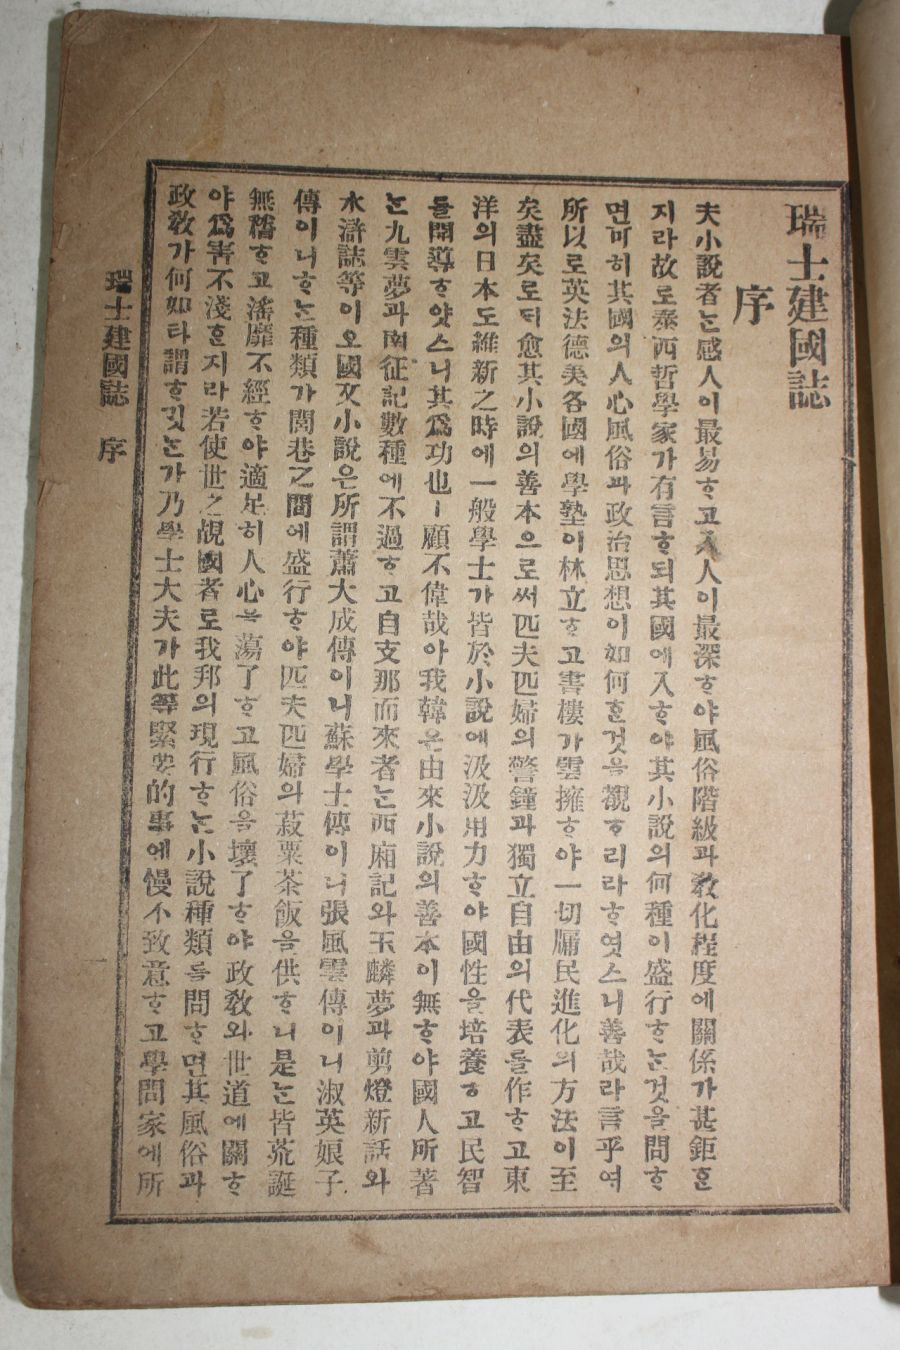 瑞士建國誌
序
夫小說者는感人이最易ᄒᆞ고入人이最深ᄒᆞ야風俗階級과敎化程度에關係가甚鉅ᄒᆞᆫ
지라故로泰西哲學家가有言ᄒᆞ되其國에入ᄒᆞ야其小說의何種이盛行ᄒᆞ는것을問ᄒᆞ
면可히其國의人心風俗과政治思想이如何ᄒᆞᆫ것을覩ᄒᆞ리라ᄒᆞ엿스니善哉라言乎여
所以로英法德美各國에學塾이林立ᄒᆞ고書樓가雲擁ᄒᆞ야一切牖民進化의方法이至
矣盡矣로되愈其小說의善本으로써匹夫匹婦의警鐘과獨立自由의代表를作ᄒᆞ고東
洋의日本도維新之時에一般學士가皆於小說에汲汲用力ᄒᆞ야國性을培養ᄒᆞ고民智
를開導ᄒᆞ얏스니其爲功也ㅣ顧不偉哉아我韓은由來小說의善本이無ᄒᆞ야國人所著
는九雲夢과南征記數種에不過ᄒᆞ고自支那而來者는西廂記와玉麟夢과剪燈新話와
水滸誌等이오國文小說은所謂蕭大成傳이니蘇學士傳이니張風雲傳이니淑英娘子
傳이니ᄒᆞ는種類가閭巷之間에盛行ᄒᆞ야匹夫匹婦의菽粟茶飯을供ᄒᆞ니是는皆荒誕
無稽ᄒᆞ고淫靡不經ᄒᆞ야適足히人心을蕩了ᄒᆞ고風俗을壞了ᄒᆞ야政敎와世道에關ᄒᆞ
야爲害不淺ᄒᆞᆫ지라若使世之覘國者로我邦의現行ᄒᆞ는小說種類를問ᄒᆞ면其風俗과
政敎가何如타謂ᄒᆞ깃는가乃學士大夫가此等緊要的事에慢不致意ᄒᆞ고學問家에所
瑞士建國誌 序
一